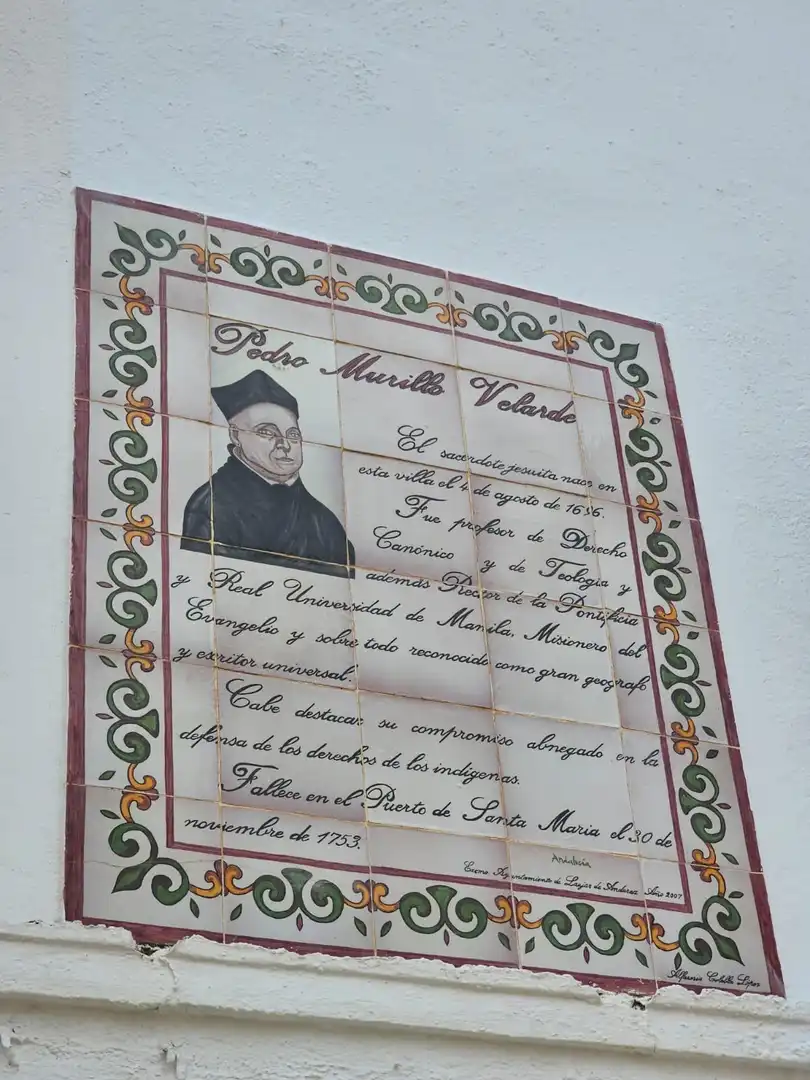 Pedro Murillo Velarde
El sacerdote jesuita nace en
esta villa el 4 de agosto de 1696.
Fue profesor de Derecho
Canónico y de Teología y
además Rector de la Pontificia
y Real Universidad de Manila, Misionero del
Evangelio y sobre todo reconocido como gran geografo
y escritor universal.
Cabe destacar su compromiso abnegado en la
defensa de los derechos de los indígenas.
Fallece en el Puerto de Santa Maria el 30 de
noviembre de 1753.
Andalucía
Excmo. Ayuntamiento de Laujar de Andarax Año 2007
López